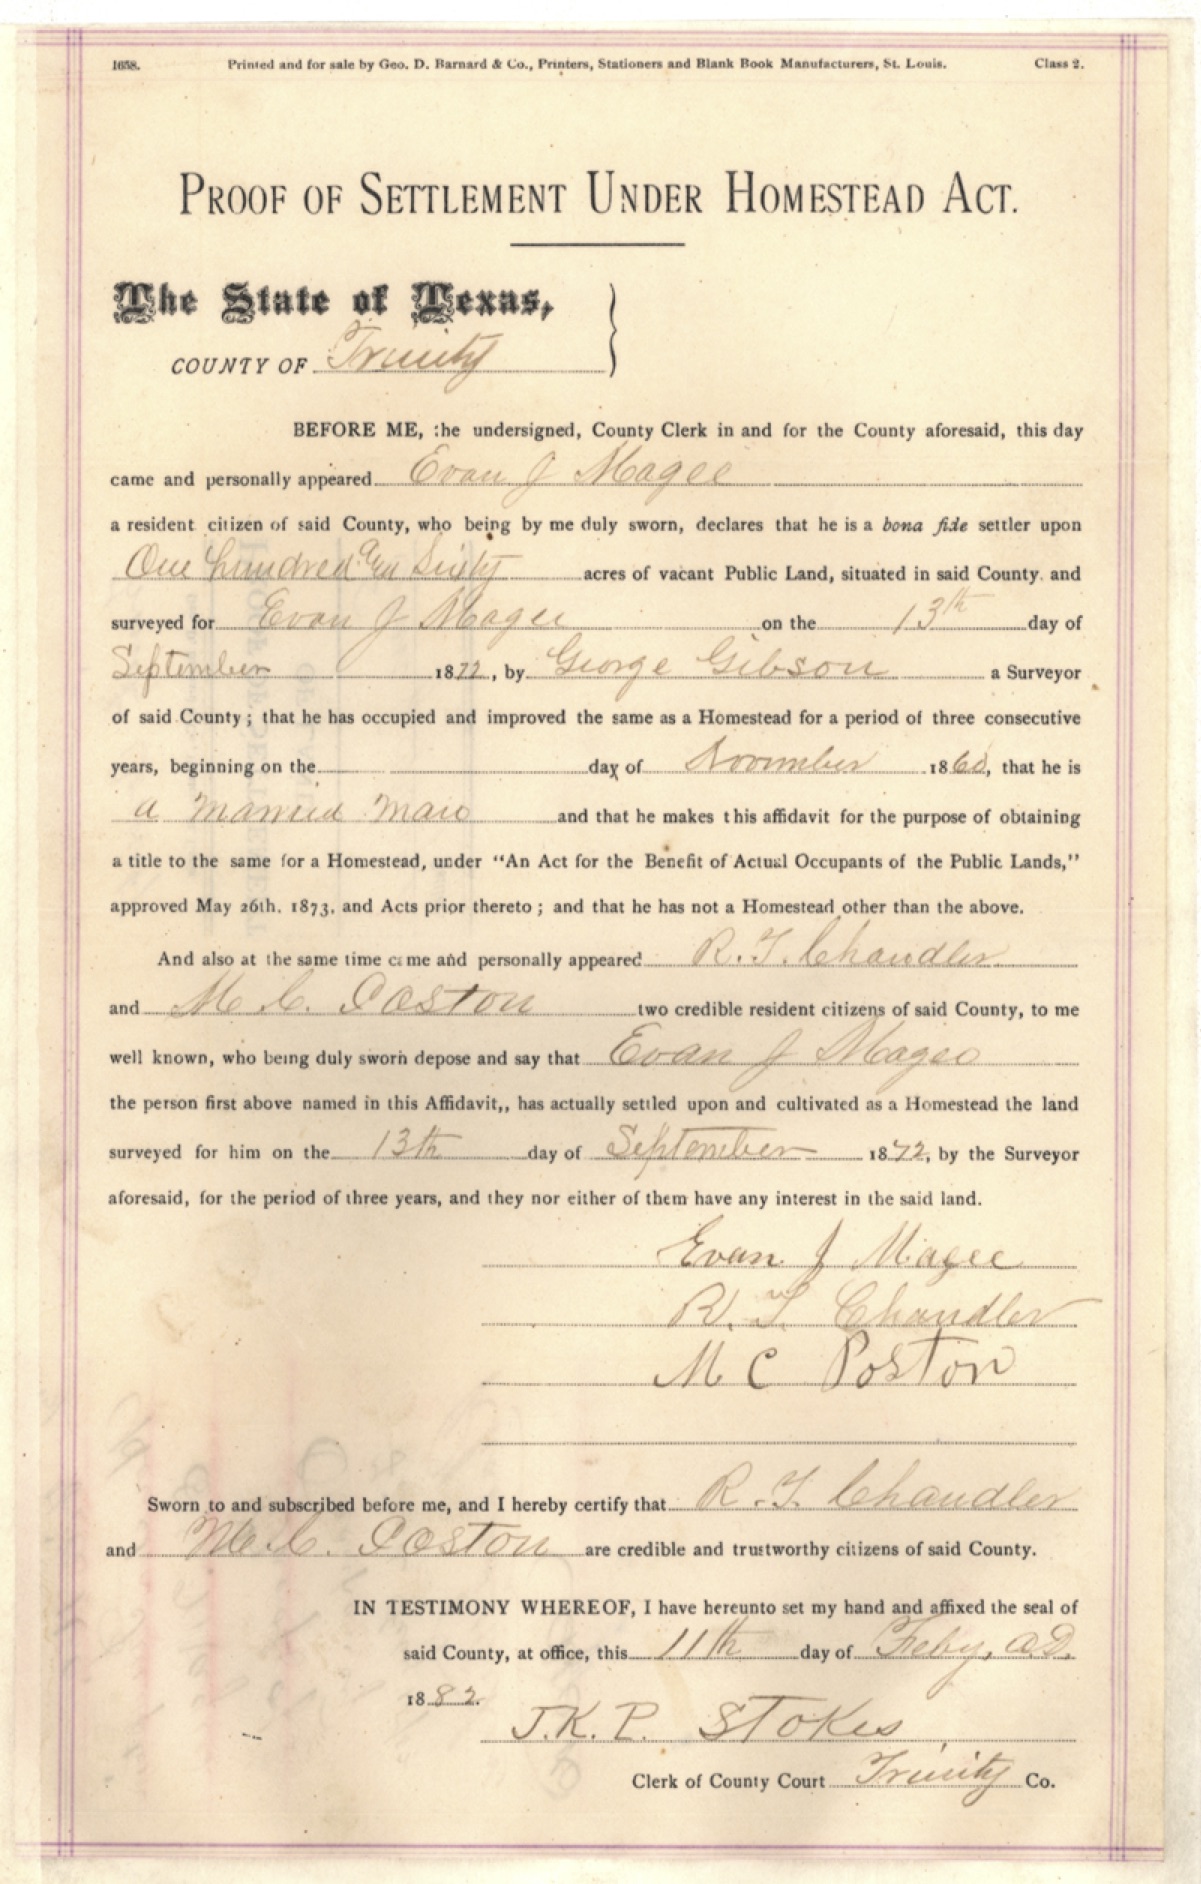 1658. Printed and for sale by Geo. D. Barnard & Co., Printers, Stationers and Blank Book Manufacturers, St. Louis. Class 2.
PROOF OF SETTLEMENT UNDER HOMESTEAD ACT.
The State of Texas,
COUNTY OF Trinity
BEFORE ME, the undersigned, County Clerk in and for the County aforesaid, this day
came and personally appeared Evan J Magee
a resident citizen of said County, who being by me duly sworn, declares that he is a bona fide settler upon
One hundred and Sixty acres of vacant Public Land, situated in said County and
surveyed for Evan J Magee on the 13th day of
September 1872, by George Gibson a Surveyor
of said County; that he has occupied and improved the same as a Homestead for a period of three consecutive
years, beginning on the day of November 1860, that he is
a married man and that he makes this affidavit for the purpose of obtaining
a title to the same for a Homestead, under "An Act for the Benefit of Actual Occupants of the Public Lands,"
approved May 26th, 1873, and Acts prior thereto; and that he has not a Homestead other than the above.
And also at the same time came and personally appeared R. T. Chandler
and M. C. Poston two credible resident citizens of said County, to me
well known, who being duly sworn depose and say that Evan J Magee
the person first above named in this Affidavit,, has actually settled upon and cultivated as a Homestead the land
surveyed for him on the 13th day of September 1872, by the Surveyor
aforesaid, for the period of three years, and they nor either of them have any interest in the said land.
Evan J Magee
R. T. Chandler
M C Poston
Sworn to and subscribed before me, and I hereby certify that R. T. Chandler
and M. C. Poston are credible and trustworthy citizens of said County.
IN TESTIMONY WHEREOF, I have hereunto set my hand and affixed the seal of
said County, at office, this 11th day of Feby, A.D.
1882.
J. K. P. Stokes
Clerk of County Court Trinity Co.